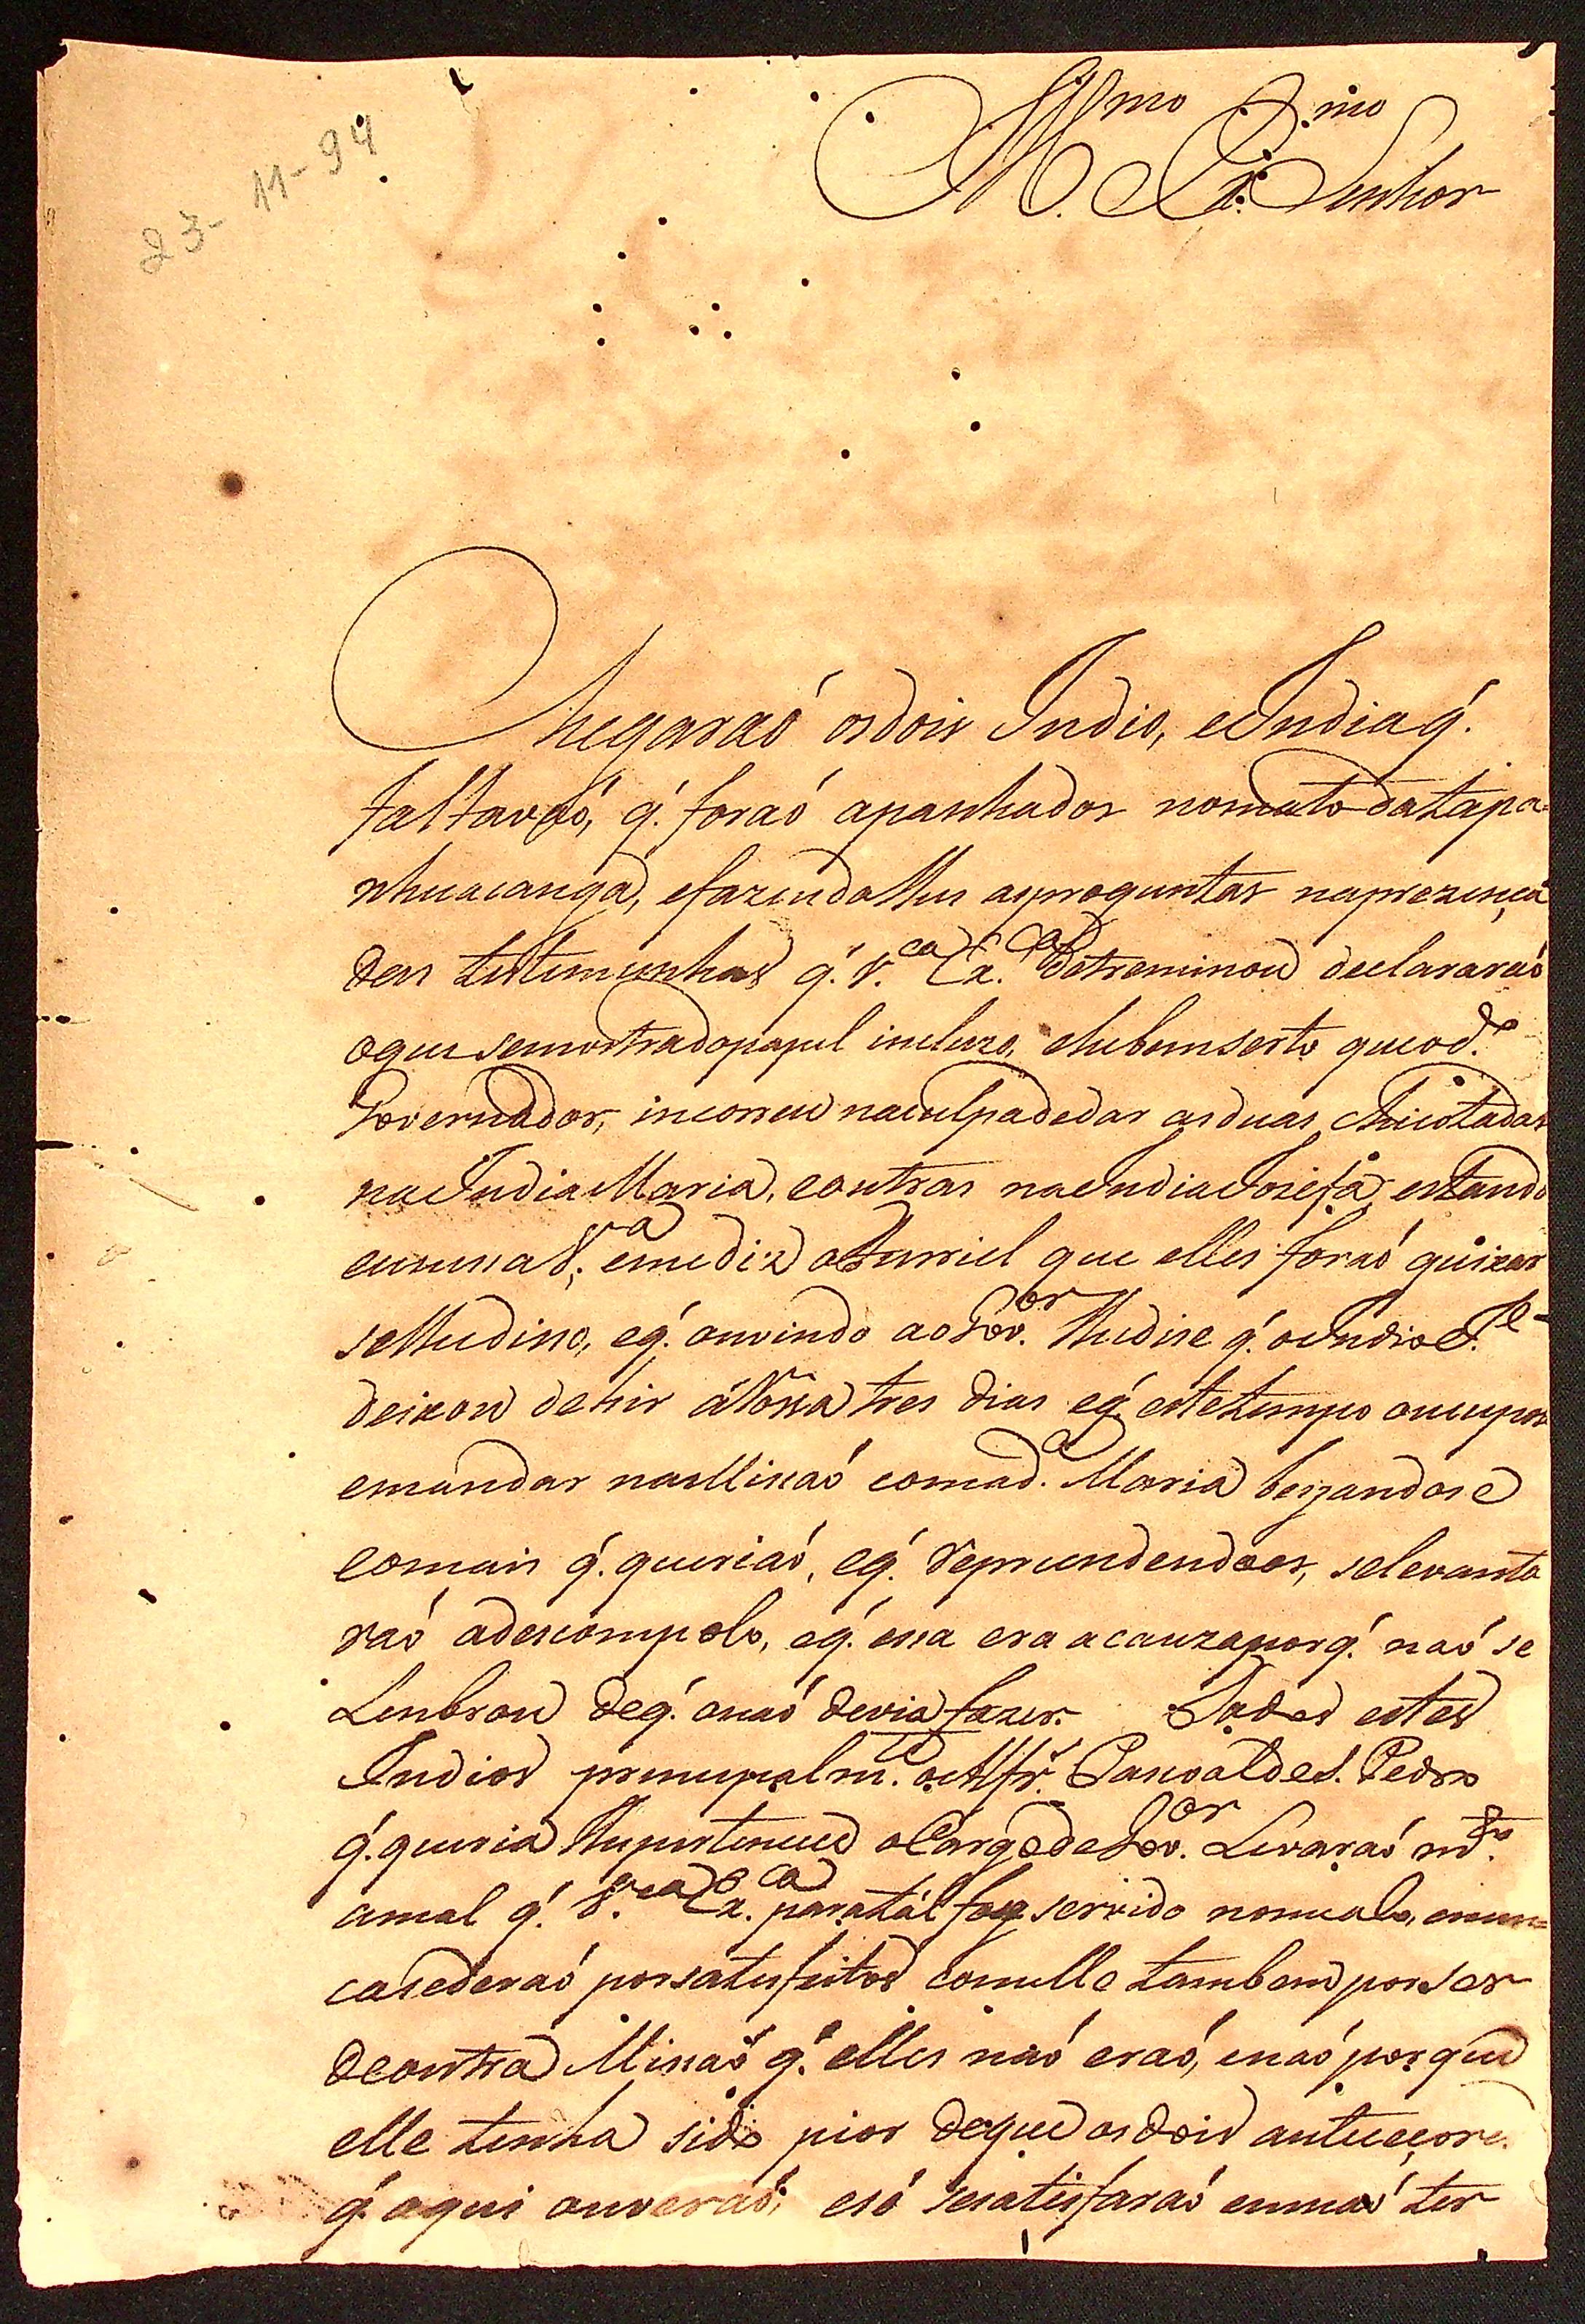 23-11-94
Illmo Exmo
Senhor
Chegaraó osdois Indio, eIndia q́.
faltavaó, q́. foraó apanhados nomato datapa-
nhuacanga, efazendolhes asproguntas naprezença
das testemunhas q́. V.ca Ex.ca detreminou declararaó
oque semostradopapel incluzo, ehebemserto queod.o
Governador, incorreu naculpadedar asduas chicotadas
naIndiaMaria, eoutras naIndiaJosefa, estando
emediz oFurriel que elles foraó queixar
selhedisso, eq́. ouvindo aoGov.or lhedise q́. oIndio
deixou dehir áRossa tres dias eq́. estetempo
emandar naMissaó comad.a Maria beijandose
eomais q́. queriaó, eq́. reprendendoos, selevanta
raó adescompolo, eq́. essa era acauzaporq́. naó se
Lenbrou deq́. onaó devia fazer. Todos estes
Indios prencipalm.e oAlfr.s PascoaldeS. Pedro
q́. queria lhepertencese oCargodeGov.or Levaraó
amal q́. V.ca Ex.ca paratál fose servido nomealo, enun-
casederaó porsatisfeitos comelle tambem porser
deoutra Missaó q́. elles naó eraó, enaó porque
elle tenha sido pior doque osdois antecesores
q́. aqui ouveraó, esó sesatisfaraó emnaó ter